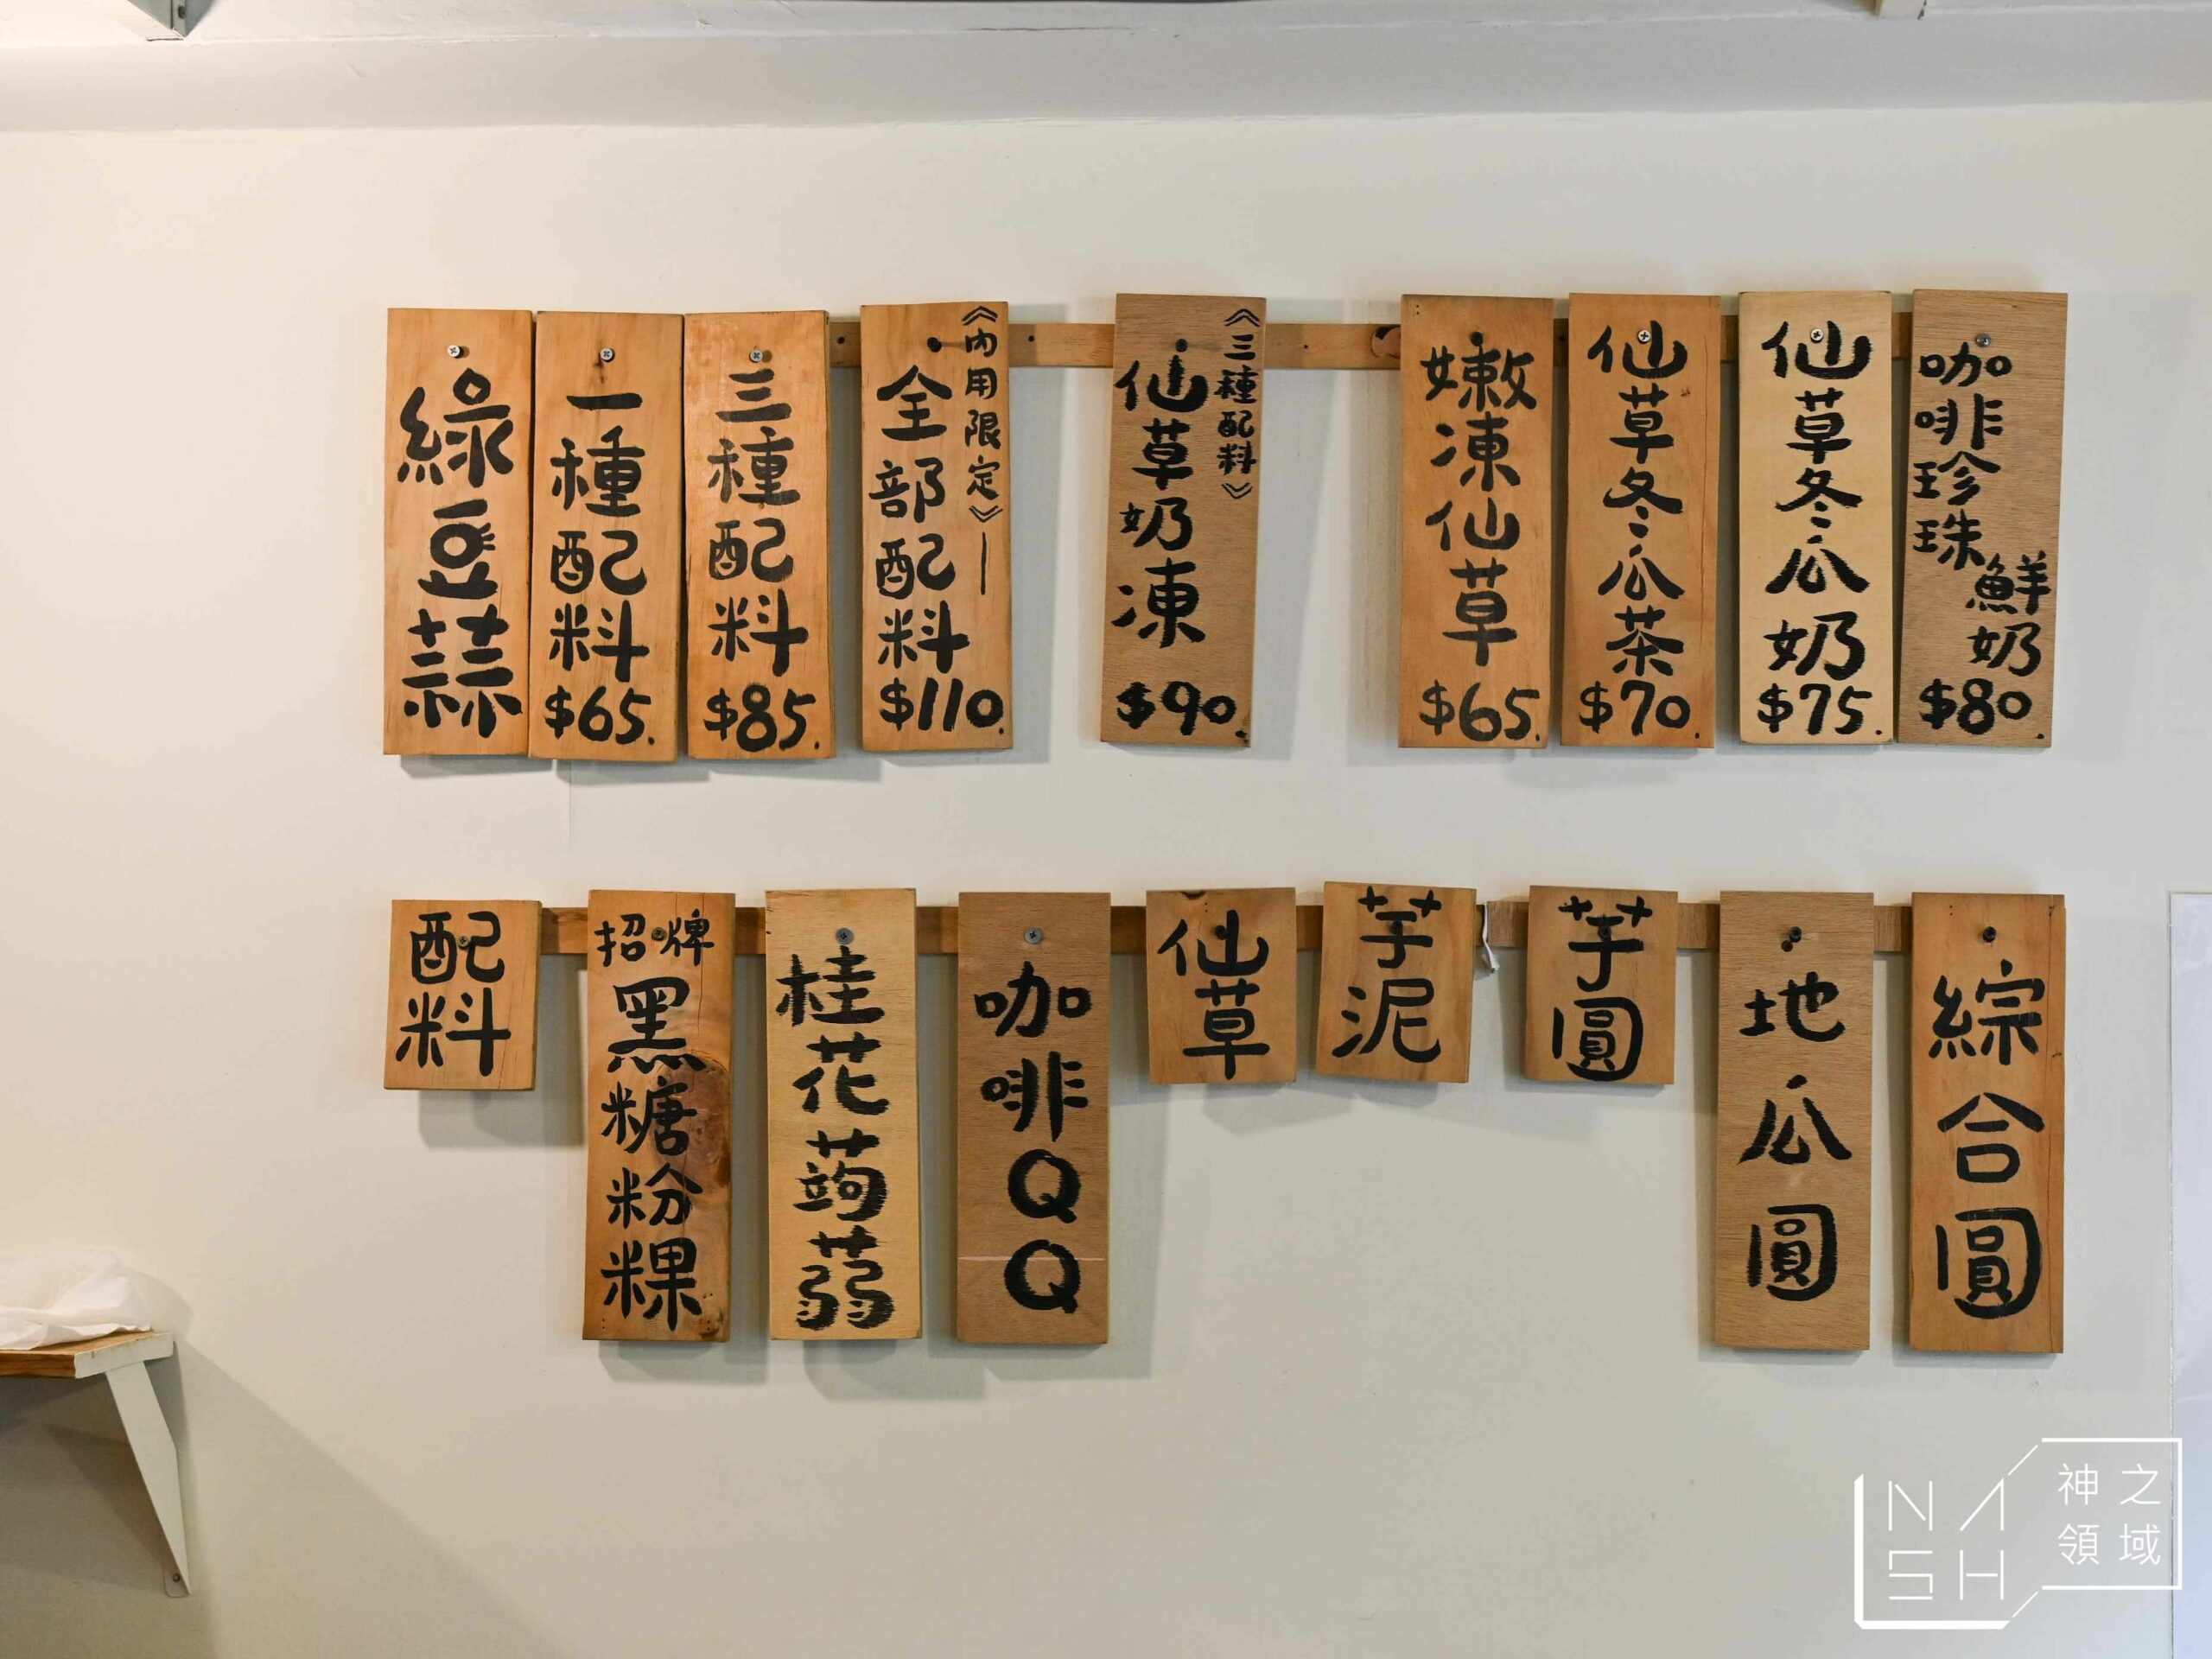 綠豆蒜
一種配料
$65.
三種配料
$85.
《內用限定》
全部配料
$110.
《三種配料》
仙草奶凍
$90.
嫩凍仙草
$65.
仙草冬瓜茶
$70.
仙草冬瓜奶
$75.
咖啡珍珠
鮮奶
$80.
配料
招牌
黑糖粉粿
桂花蒟蒻
咖啡QQ
仙草
芋泥
芋圓
地瓜圓
綜合圓
NASH
神之領域